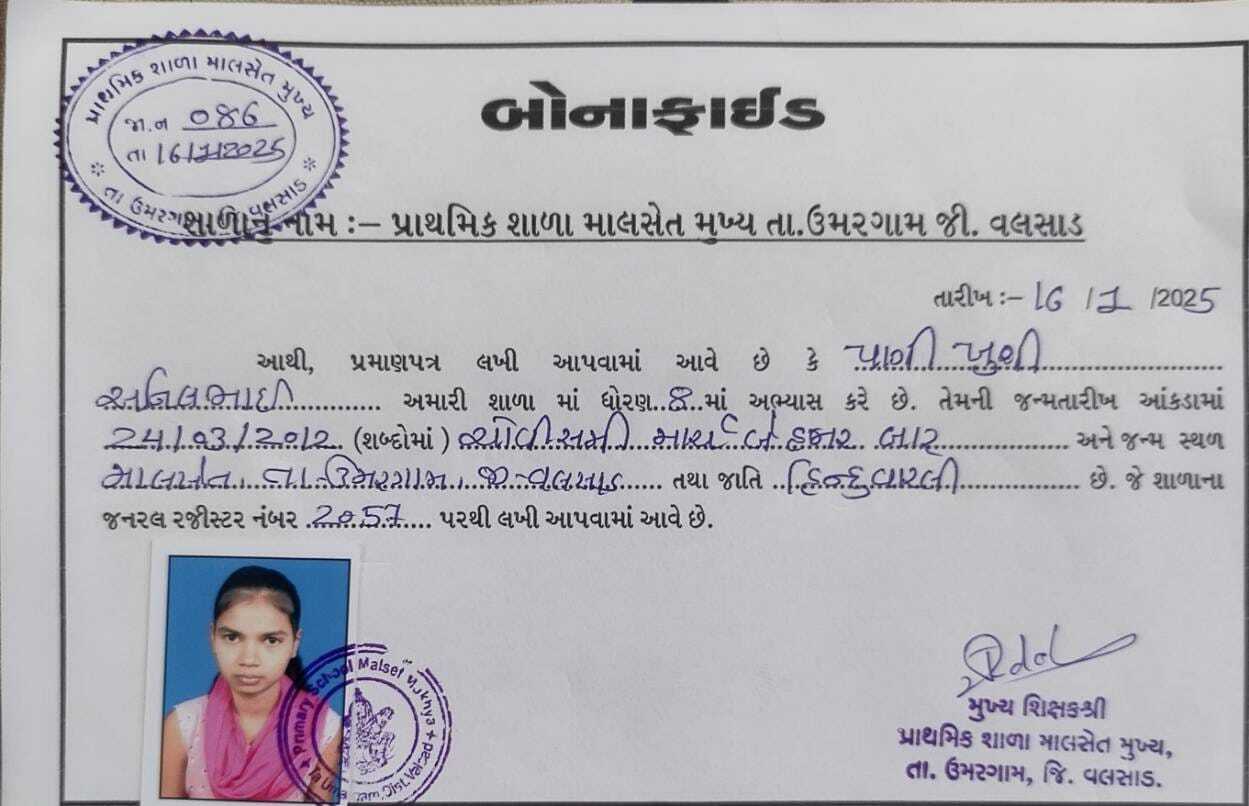 પ્રાથમિક શાળા માલસેત મુખ્ય
જા.ન ૦86
તા 16/1/2025
તા ઉમરગામ વલસાડ
બોનાફાઈડ
શાળાનુ નામ :– પ્રાથમિક શાળા માલસેત મુખ્ય તા.ઉમરગામ જી. વલસાડ
તારીખ :– 16 /1 /2025
આથી, પ્રમાણપત્ર લખી આપવામાં આવે છે કે પાગી ખુશી
અનિલભાઈ અમારી શાળા માં ધોરણ..8..માં અભ્યાસ કરે છે. તેમની જન્મતારીખ આંકડામાં
24/03/2012 (શબ્દોમાં) ચોવીસમી માર્ચ બે હજાર બાર અને જન્મ સ્થળ
માલખેત તા-ઉમરગામ જી-વલસાડ તથા જાતિ હિન્દુ વારલી છે. જે શાળાના
જનરલ રજીસ્ટર નંબર 2057 પરથી લખી આપવામાં આવે છે.
Primary School Malset Mukhya
Dist.Valsad
મુખ્ય શિક્ષકશ્રી
પ્રાથમિક શાળા માલસેત મુખ્ય,
તા. ઉમરગામ, જિ. વલસાડ.